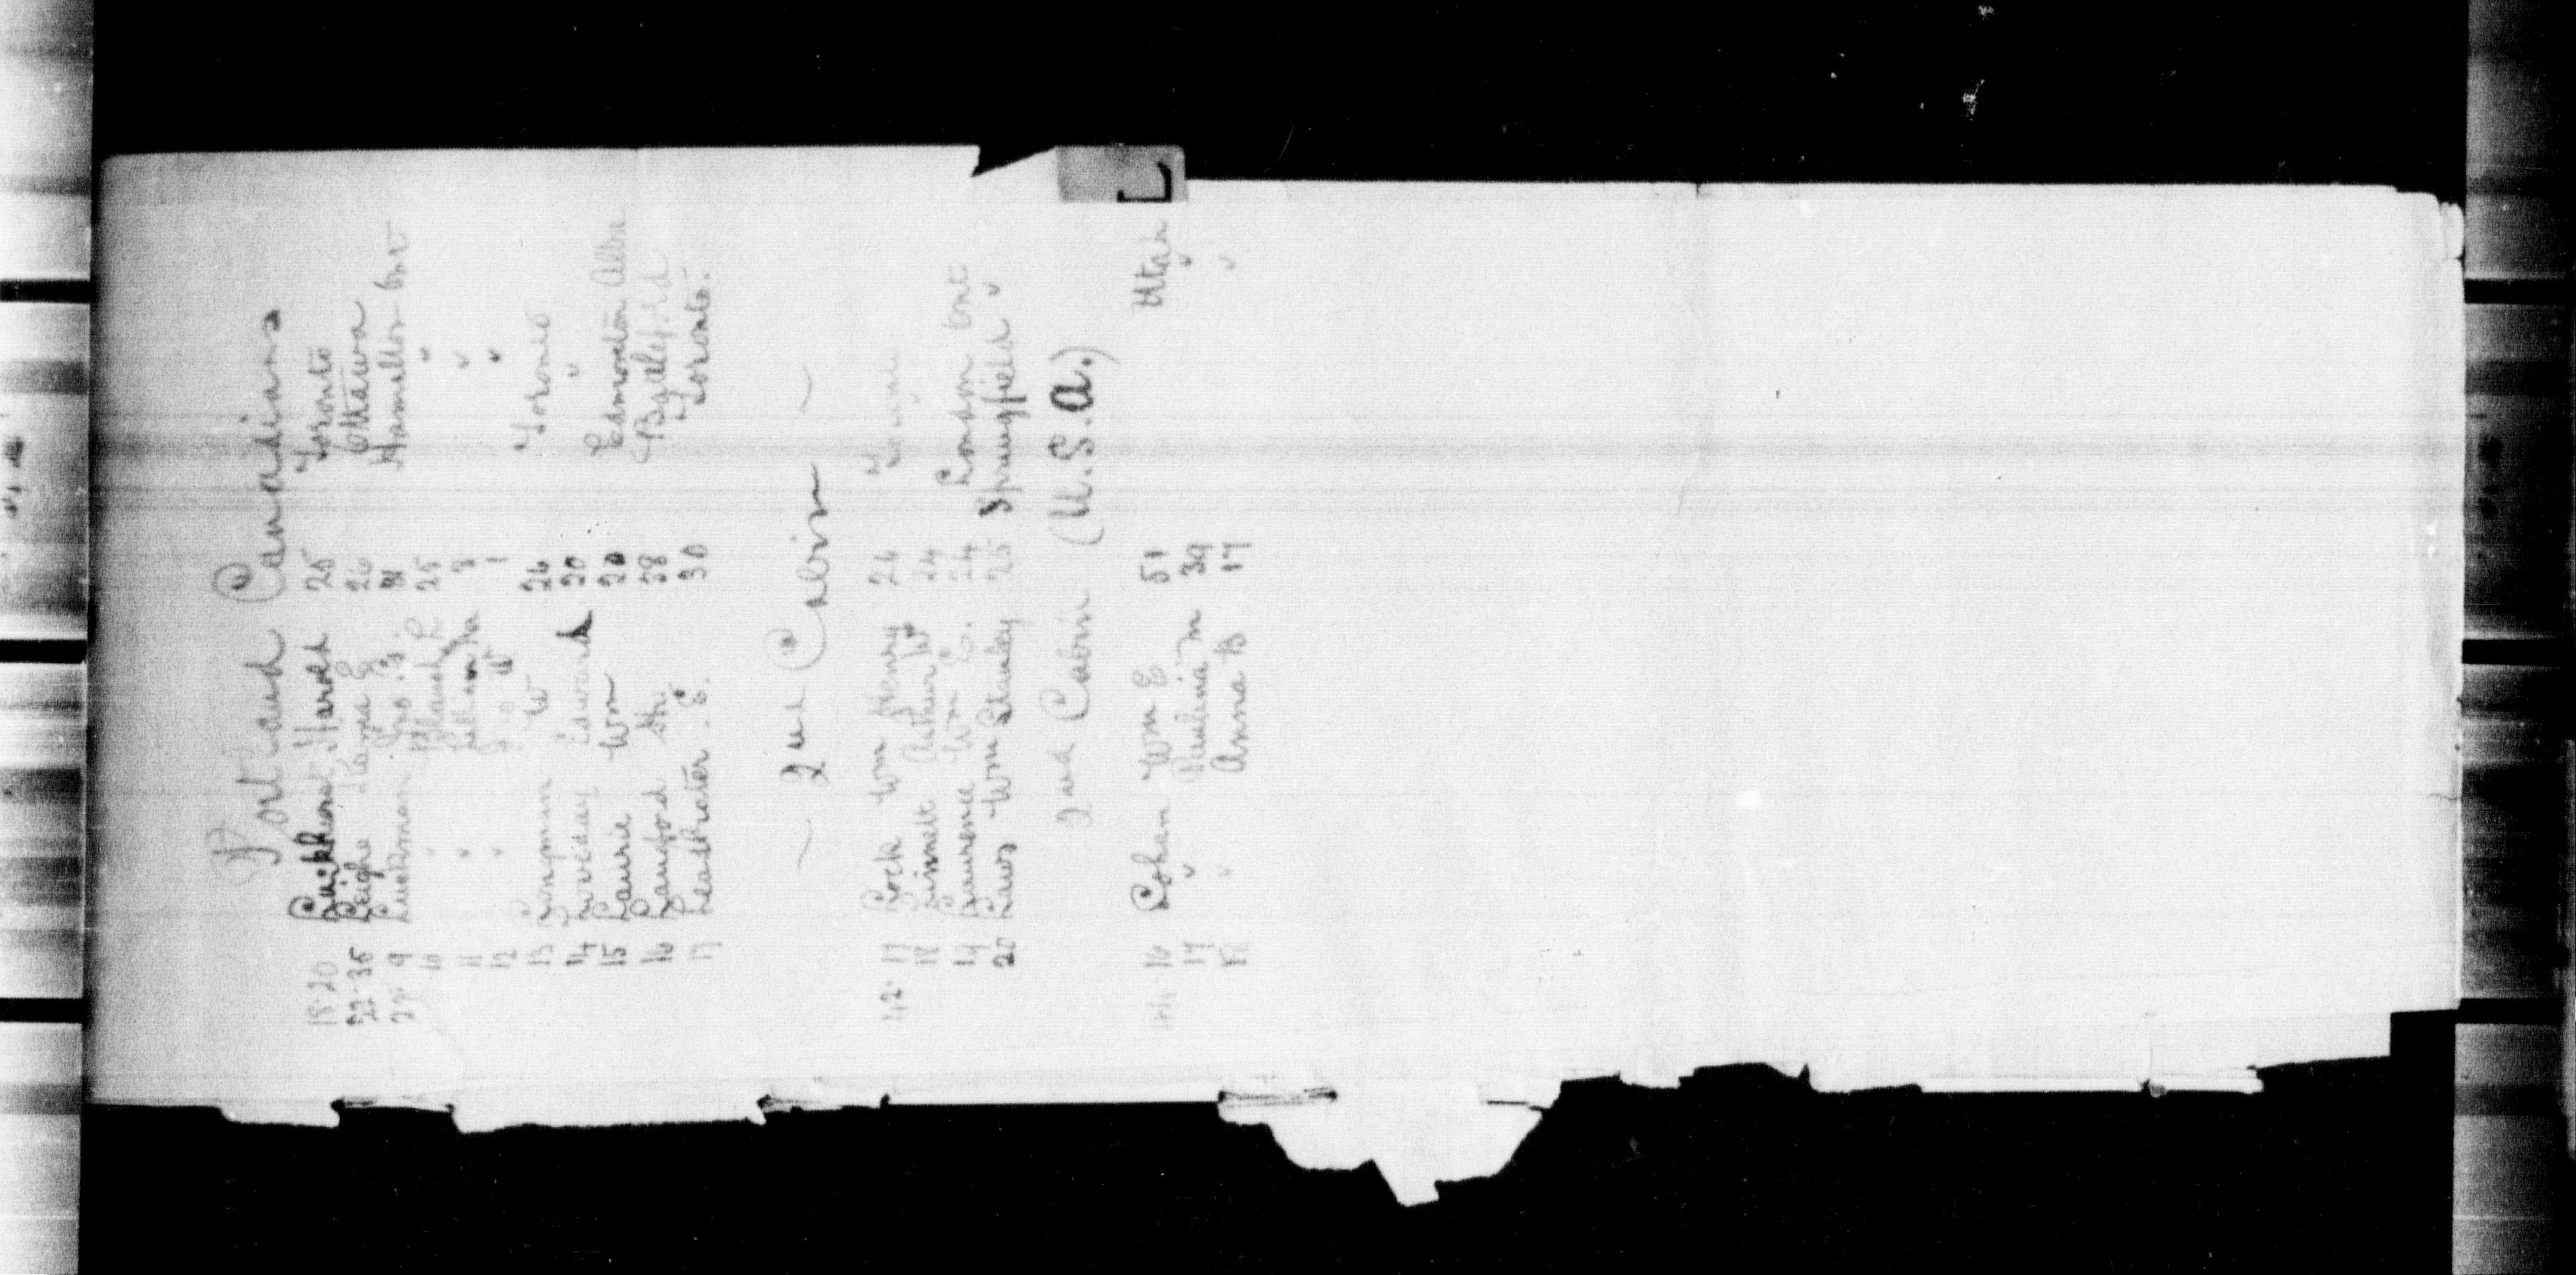 L
Portland Canadians
18-20 Luckhurst Harold 25 Toronto
22-35 Leigh Lena E 26 Ottawa
27 9 Luckman Geo. S. 31 Hamilton Ont
10 " Blanch L 25 "
11 " 3 "
12 " Geo W 1 "
13 Longman W 26 Toronto
14 Loveday Edward 20 "
15 Laurie Wm 20 Edmonton Alba
16 Langford 38
17 Leadbeater. E. 30 Toronto.
2nd Cabin
42. 17 Lock Wm Henry 24
18 Linnell Arthur W 24
19 Laurence Wm E. 24 London Ont
20 Laws Wm Stanley 25 Springfield "
2nd Cabin (U.S.A.)
144 16 Lohan Wm E 51 Utah
17 " Paulina M 39 "
18 " Anna B 17 "